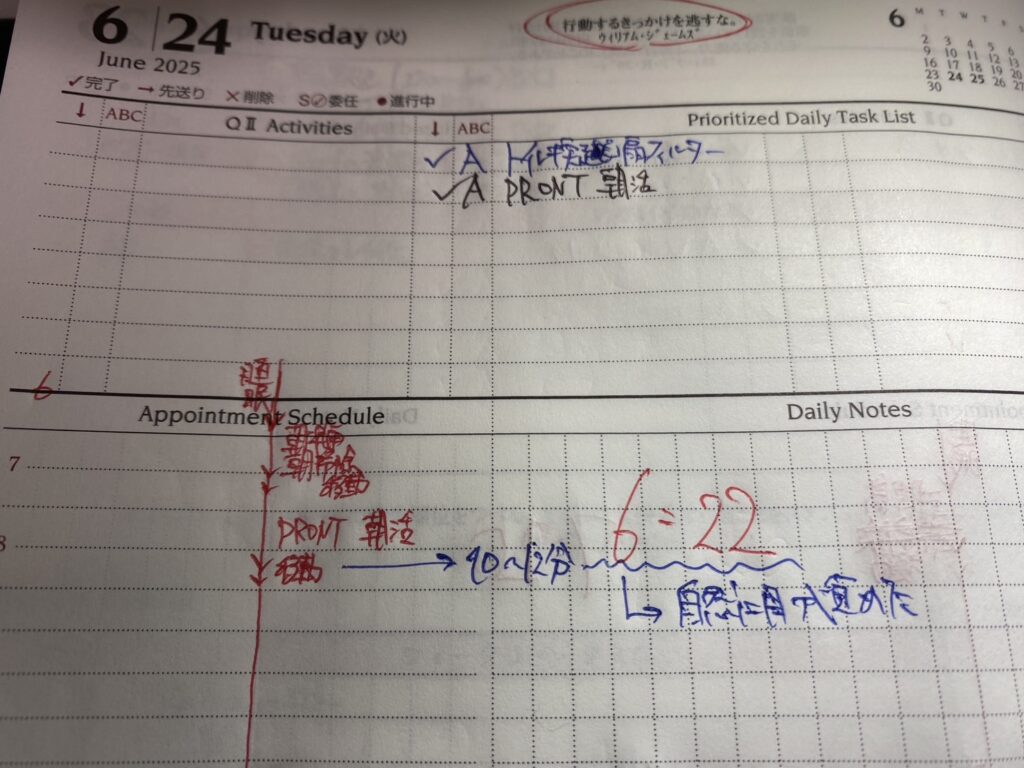 6 24 Tuesday (火)
June 2025
行動するきっかけを逃すな。
ウィリアム・ジェームズ
6
M T W T F
2 3 4 5 6
9 10 11 12 13
16 17 18 19 20
23 24 25 26 27
30
✓完了 →先送り ×削除 S⊘委任 ●進行中
↓ ABC QⅡ Activities ↓ ABC Prioritized Daily Task List
✓ A トイレ フィルター
✓ A PRONT 朝活
6
睡眠
Appointment Schedule Daily Notes
7
移動
6:22
PRONT 朝活
8
移動 → 90～12分
↳ 自然に目が覚めた